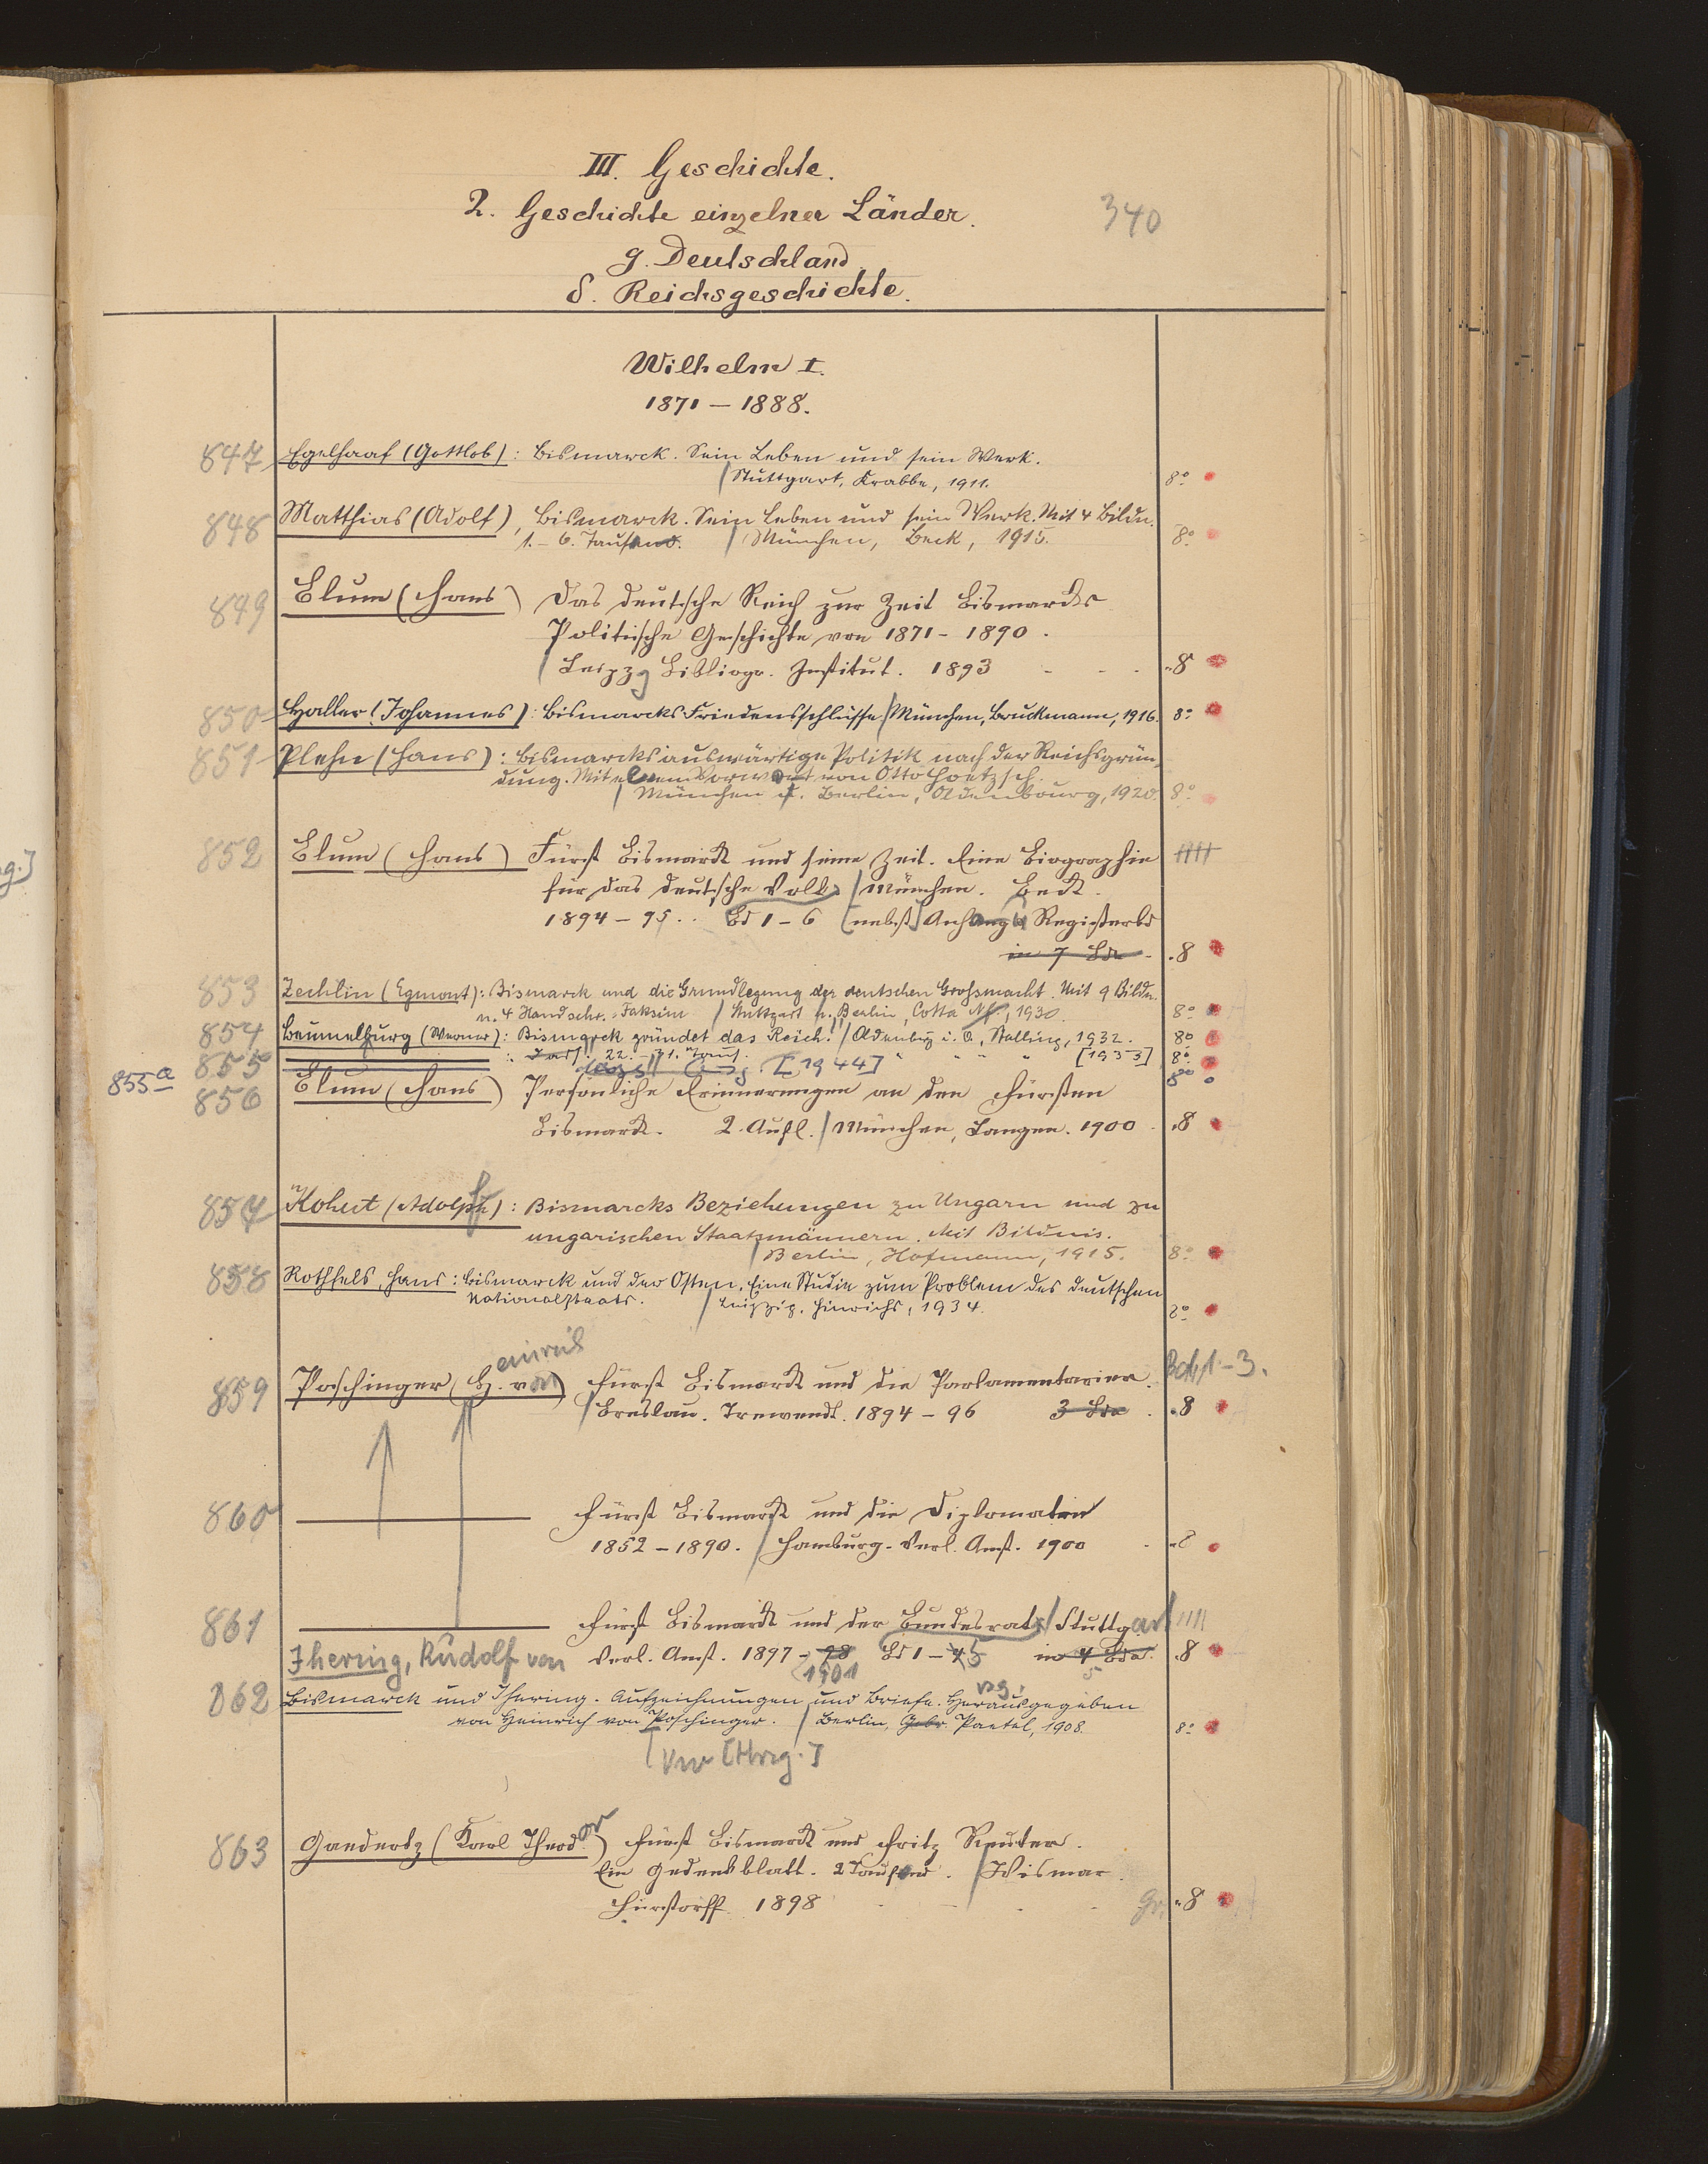 III. Geschichte.
2. Geschichte einzelner Länder.
340
g. Deutschland
δ. Reichsgeschichte.
Wilhelm I.
1871 – 1888.
847 Egelhaaf (Gottlob): Bismarck. Sein Leben und sein Werk.
/ Stuttgart, Krabbe, 1911. 8°
848 Matthias (Adolf), Bismarck. Sein Leben und sein Werk. Mit 4 Bildn.
1.–6. Tausend. / München, Beck, 1915. 8°
849 Blum (Hans) Das deutsche Reich zur Zeit Bismarcks
Politische Geschichte von 1871–1890.
/ Leipzg Bibliogr. Institut. 1893 - - - 8
850 Haller (Johannes): Bismarcks Friedensschlüsse / München, Bruckmann, 1916. 8°
851 Plehn (Hans): Bismarcks auswärtige Politik nach der Reichsgrün-
dung. Mit einem Vorwort von Otto Hoetzsch.
/ München u. Berlin, Oldenbourg, 1920. 8°
852 Blum (Hans) Fürst Bismarck und seine Zeit. Eine Biographie
für das deutsche Volk / München. Beck.
1894–95.. Bd 1–6 [nebst] Anhang u Registerbd
in 7 Bde - 8
853 Zechlin (Egmont): Bismarck und die Grundlegung der deutschen Grossmacht. Mit 9 Bildn.
u. 4 Handschr.-Faksim / Stuttgart u. Berlin, Cotta Nf., 1930. 8°
854 Beumelburg (Werner): Bismarck gründet das Reich. / Oldenburg i. O, Stalling, 1932. 8°
855 : Dass. 22.–31. Taus. " " " " [1933] 8°
855a [1944] 8°
856 Blum (Hans) Persönliche Erinnerungen an den Fürsten
Bismarck. 2. Aufl. / München, Langen. 1900 - 8
857 Kohut (Adolph): Bismarcks Beziehungen zu Ungarn und zu
ungarischen Staatsmännern. Mit Bildnis.
/ Berlin, Hofmann, 1915. 8°
858 Rothfels, Hans: Bismarck und der Osten. Eine Studie zum Problem des deutschen
Nationalstaats. / Leipzig, Hinrichs, 1934. 8°
einrich
859 Poschinger (H. von) Fürst Bismarck und die Parlamentarier. Bd. 1–3.
/ Breslau. Trewendt. 1894–96 3 Bde . 8
860 ——— Fürst Bismarck und die Diplomaten
1852–1890. / Hamburg. Verl. Anst. 1900 - 8
861 ——— Fürst Bismarck und der Bundesrat / Stuttgart
Verl. Anst. 1897–98 Bd 1–4 5 in 4 Bde. 8
1901 5
Jhering, Rudolf von
862 Bismarck und Jhering. Aufzeichnungen und Briefe. Herausgegeben
von Heinrich von Poschinger. / Berlin, Gebr. Paetel, 1908. 8°
Vw [Hrsg.]
863 Gaedertz (Karl Theodor) Fürst Bismarck und Fritz Reuter.
Ein Gedenkblatt. 2 Tausend. / Wismar.
Hinstorff 1898 - - - Gr. 8